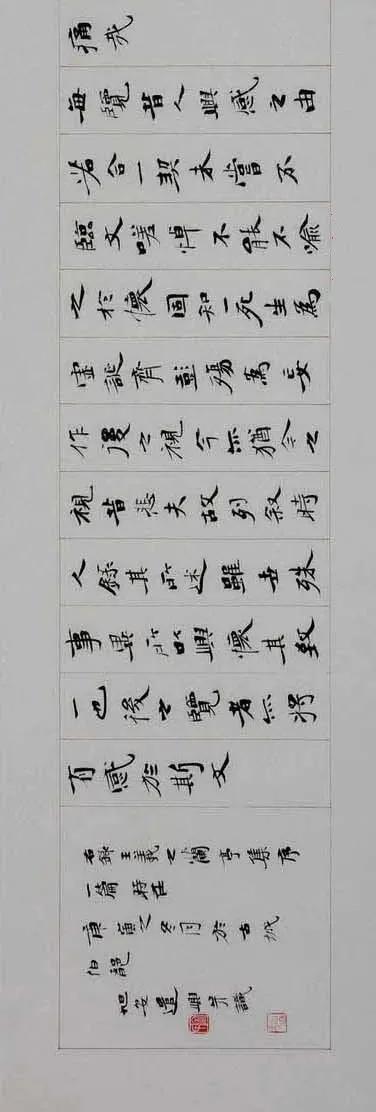 痛哉
每覽昔人興感之由
若合一契未嘗不
臨文嗟悼不能不喻
之於懷固知一死生為
虛誕齊彭殤為妄
作後之視今亦猶今之
視昔悲夫故列叙時
人錄其所述雖世殊
事異所以興懷其致
一也後之覽者亦將
有感於斯文
右錄王羲之蘭亭集序
一篇時在
庚寅之冬月於古城
伯
遣興并識